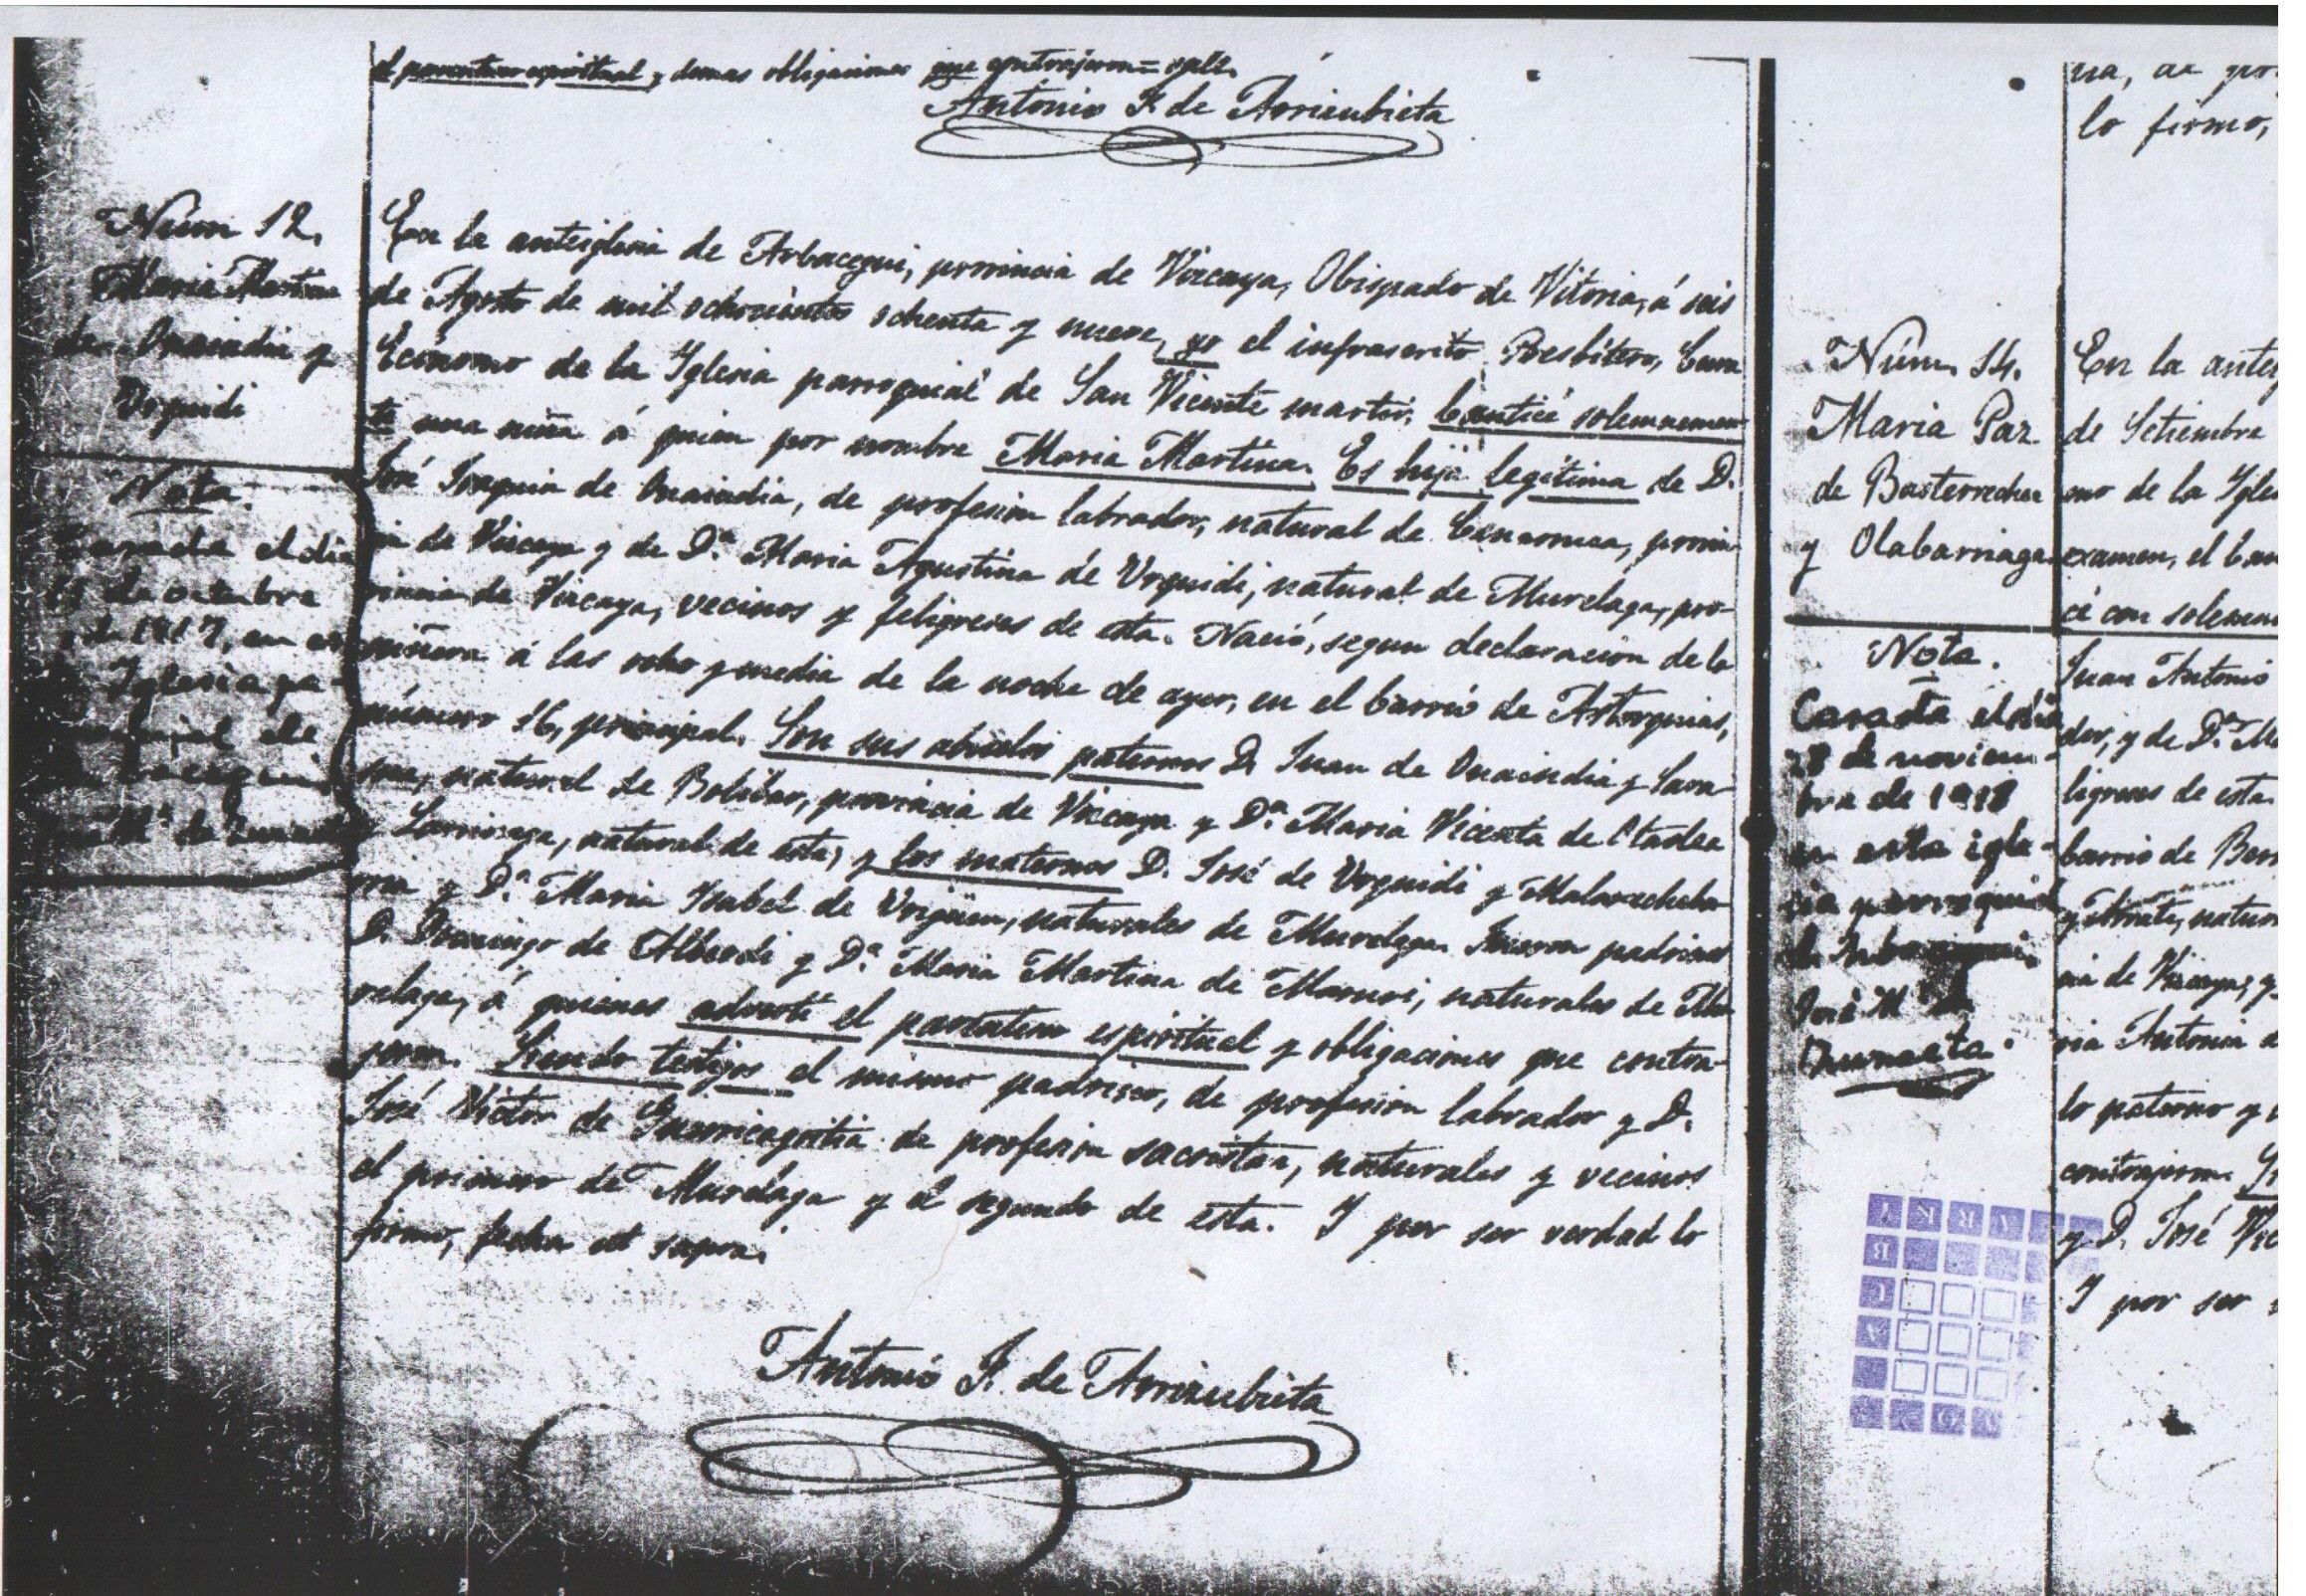 el parentesco espiritual y demas obligaciones que contrajeron =
Antonio F. de Arrizubieta
Núm 12.
Maria Martina
de Onaindia y
Urquidi
Nota.
Casada el dia
de octubre
de 1917, en
Iglesia pa-
de
En la anteiglesia de Arbacegui, provincia de Vizcaya, Obispado de Vitoria, á seis
de Agosto de mil ochocientos ochenta y nueve, yo el infrascrito Presbitero, Cura
Ecónomo de la Iglesia parroquial de San Vicente martir, bauticé solemnemen-
te una niña á quien por nombre Maria Martina. Es hija legitima de D.
José Joaquin de Onaindia, de profesion labrador, natural de Cenarruza, provin-
cia de Vizcaya y de D.ª Maria Agustina de Urquidi, natural de Murelaga, pro-
vincia de Vizcaya, vecinos y feligreses de esta. Nació, segun declaracion de la
á las ocho y media de la noche de ayer, en el barrio de Astorquias,
número 16, principal. Son sus abuelos paternos D. Juan de Onaindia y
natural de Bolibar, provincia de Vizcaya y D.ª Maria Vicenta de
Larrinaga, natural de esta; y los maternos D. José de Urquidi y Malaxecheba-
rria y D.ª Maria Isabel de Urigüen, naturales de Murelaga. Fueron padrinos
D. Domingo de Alberdi y D.ª Maria Martina de Maruri, naturales de Mu-
relaga, á quienes advertí el parentesco espiritual y obligaciones que contra-
jeron. Siendo testigos el mismo padrino, de profesion labrador y D.
José Victor de Guerricagoitia de profesion sacristan, naturales y vecinos
el primero de Murelaga y el segundo de esta. Y por ser verdad lo
firmo, fecha ut supra.
Antonio F. de Arrizubieta
Núm. 14.
Maria Paz
de Basterrechea
y Olabarriaga
Nota.
Casada el dia
28 de noviem-
bre de 1918
en esta igle-
sia parroquial
de
José M.ª de
Urunaeta
lo firmo,
En la antei
de Setiembre
mo de la Igle
examen, el
cé con solemn
Juan Antonio
dor, y de D.ª M
ligreses de esta.
barrio de Ber
y natur
cia de Vizcaya, y
ria Antonia d
lo paterno y
contrajeron.
y D. José Vic
Y por ser